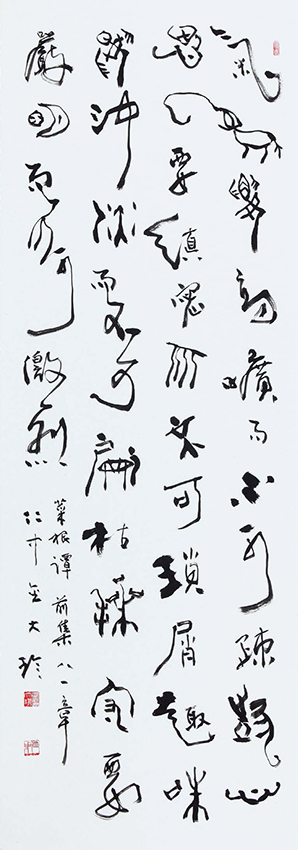 氣象要高曠而不可疎狂心
思要縝密而不可瑣屑趣味
要冲淡而不可偏枯操守要
嚴明而不可激烈
菜根譚 前集 八一章
金大